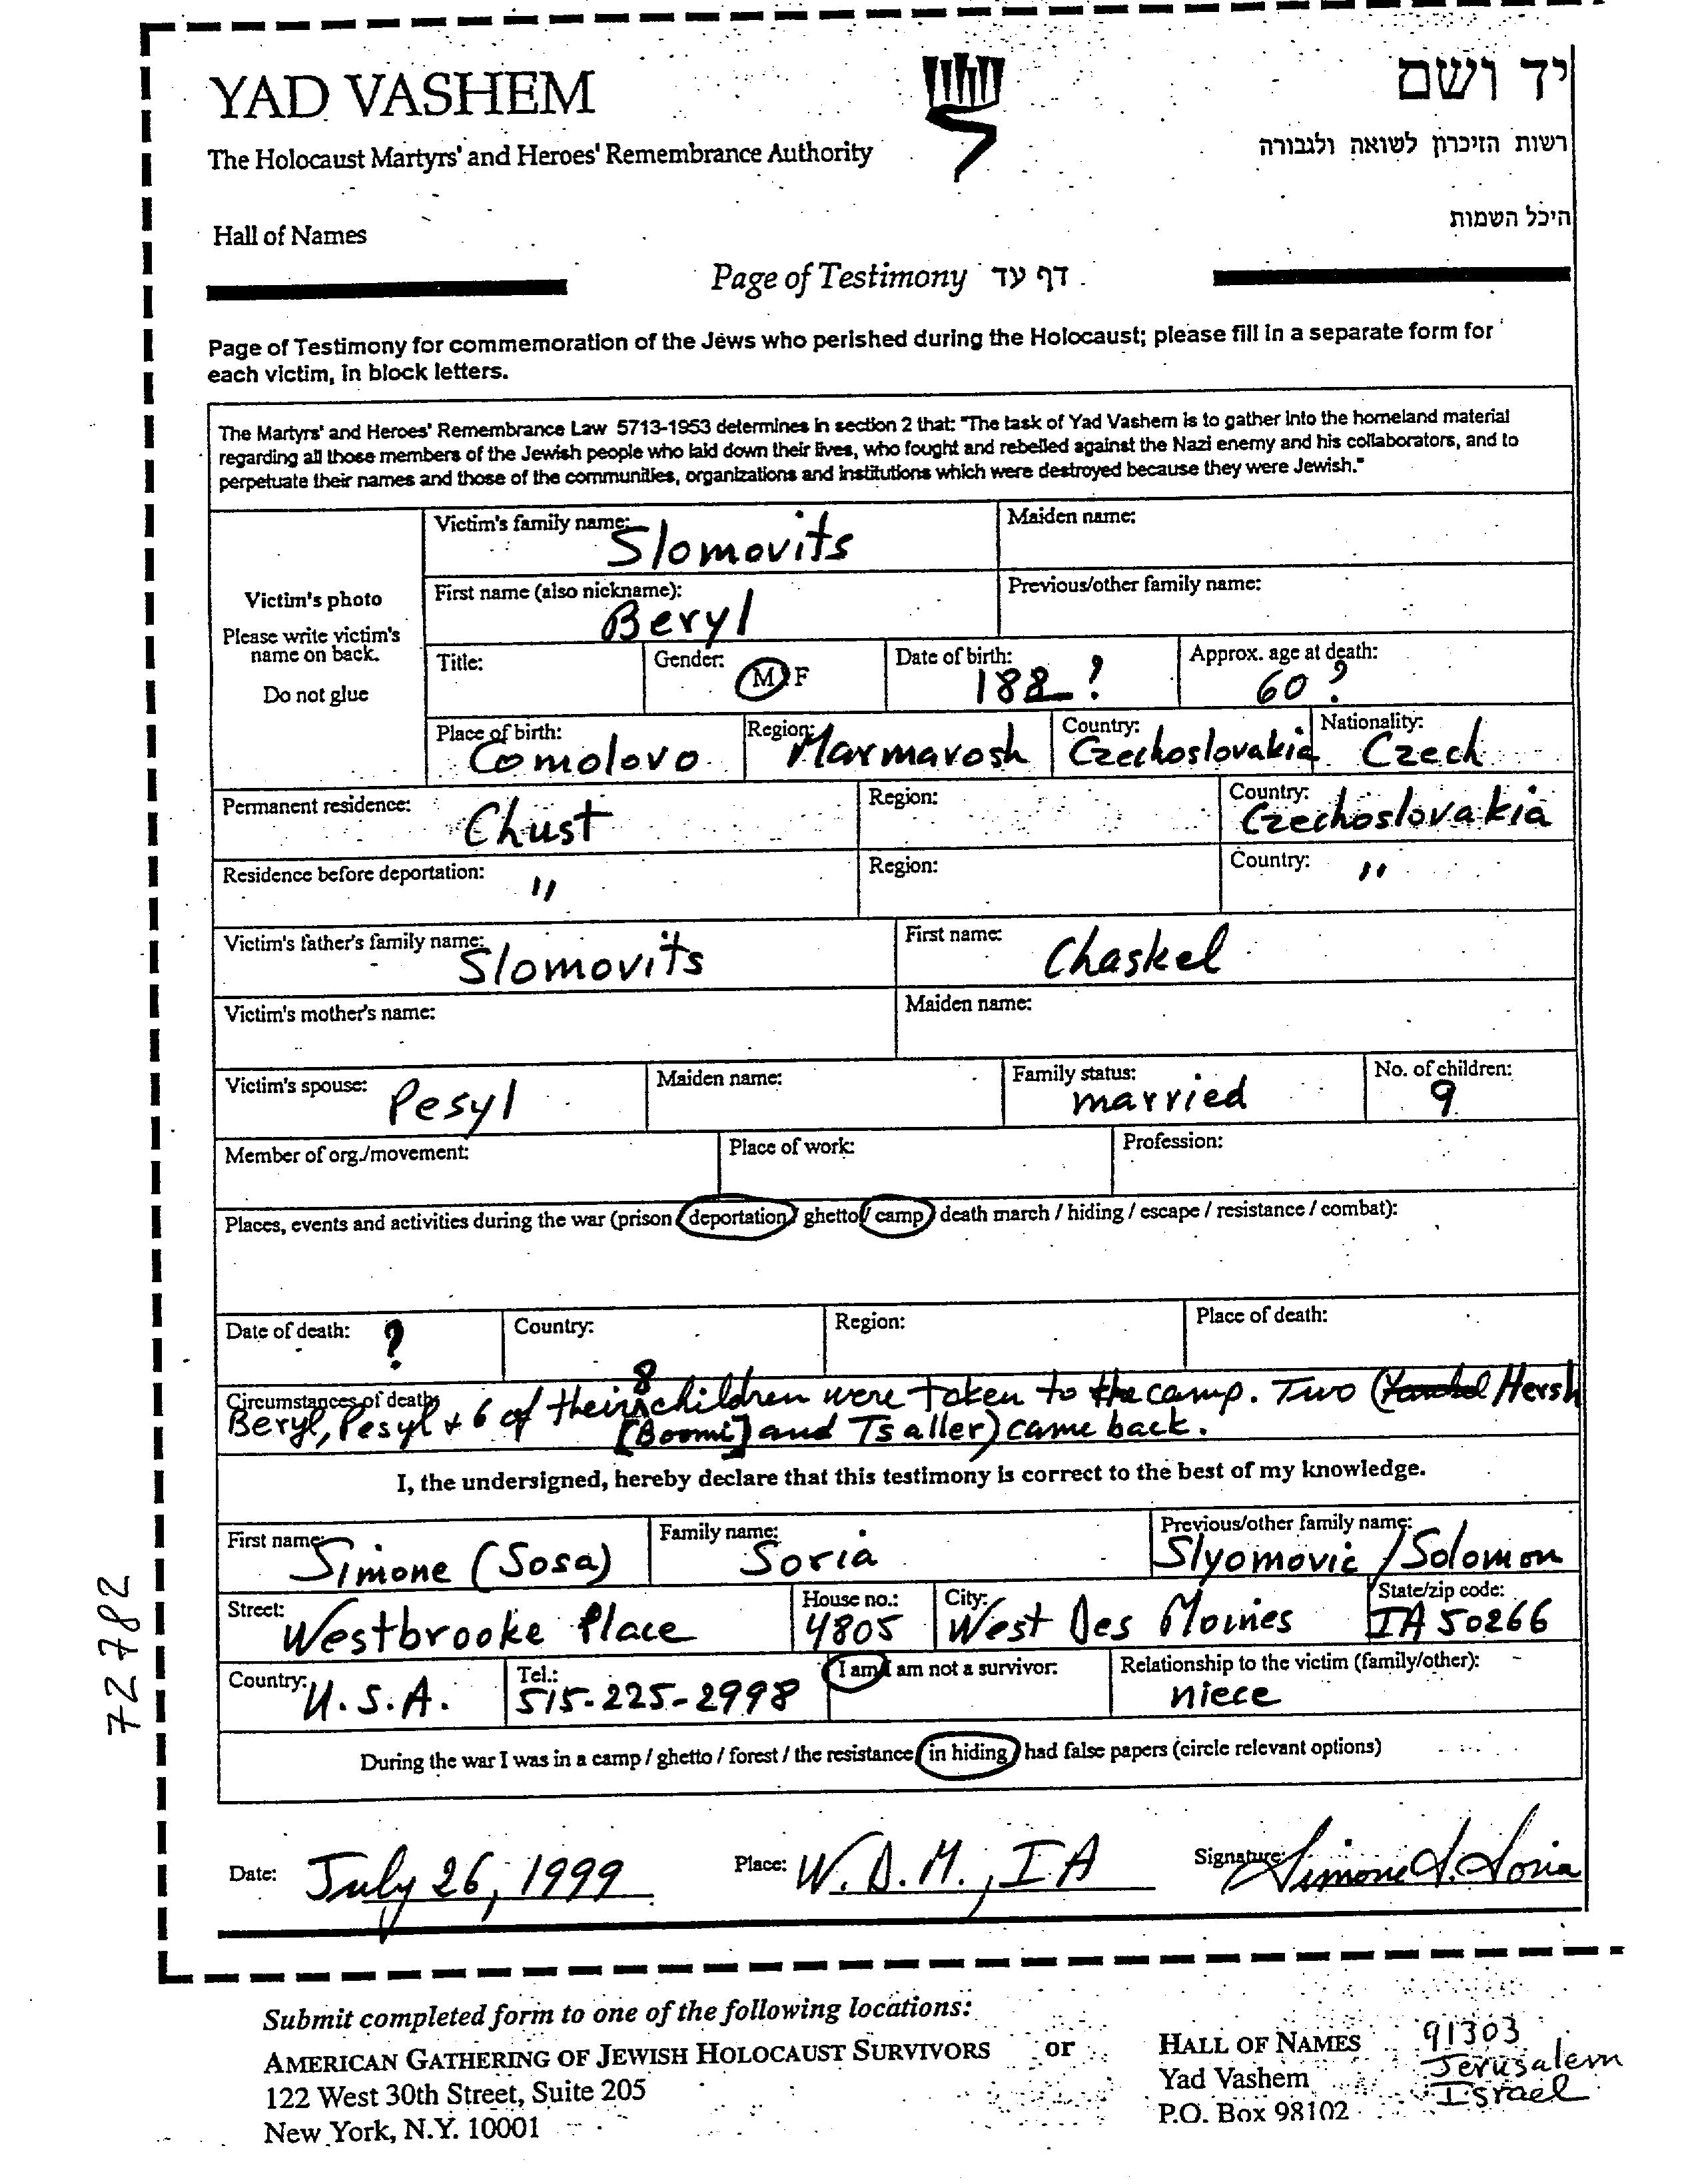 YAD VASHEM
יד ושם
The Holocaust Martyrs' and Heroes' Remembrance Authority
רשות הזיכרון לשואה ולגבורה
Hall of Names
היכל השמות
Page of Testimony דף עד
Page of Testimony for commemoration of the Jews who perished during the Holocaust; please fill in a separate form for
each victim, in block letters.
The Martyrs' and Heroes' Remembrance Law 5713-1953 determines in section 2 that: "The task of Yad Vashem is to gather into the homeland material
regarding all those members of the Jewish people who laid down their lives, who fought and rebelled against the Nazi enemy and his collaborators, and to
perpetuate their names and those of the communities, organizations and institutions which were destroyed because they were Jewish."
Victim's photo
Please write victim's
name on back.
Do not glue
Victim's family name: Slomovits Maiden name:
First name (also nickname): Beryl Previous/other family name:
Title: Gender: M F Date of birth: 188_? Approx. age at death: 60?
Place of birth: Comolovo Region: Marmarosh Country: Czechoslovakia Nationality: Czech
Permanent residence: Chust Region: Country: Czechoslovakia
Residence before deportation: " Region: Country: "
Victim's father's family name: Slomovits First name: Chaskel
Victim's mother's name: Maiden name:
Victim's spouse: Pesyl Maiden name: Family status: married No. of children: 9
Member of org./movement: Place of work: Profession:
Places, events and activities during the war (prison / deportation / ghetto / camp / death march / hiding / escape / resistance / combat):
Date of death: ? Country: Region: Place of death:
Circumstances of death: Beryl, Pesyl + 6 of their 8 children were taken to the camp. Two (Hersh
[Boomi] and Tsaller) came back.
I, the undersigned, hereby declare that this testimony is correct to the best of my knowledge.
First name: Simone (Sosa) Family name: Soria Previous/other family name: Slyomovic / Solomon
Street: Westbrooke Place House no.: 4805 City: West Des Moines State/zip code: IA 50266
Country: U.S.A. Tel.: 515-225-2998 I am / am not a survivor: Relationship to the victim (family/other): niece
During the war I was in a camp / ghetto / forest / the resistance / in hiding / had false papers (circle relevant options)
Date: July 26, 1999 Place: W.D.M., IA Signature: Simone S. Soria
72782
Submit completed form to one of the following locations:
AMERICAN GATHERING OF JEWISH HOLOCAUST SURVIVORS or HALL OF NAMES 91303
122 West 30th Street, Suite 205 Yad Vashem Jerusalem
New York, N.Y. 10001 P.O. Box 98102 Israel